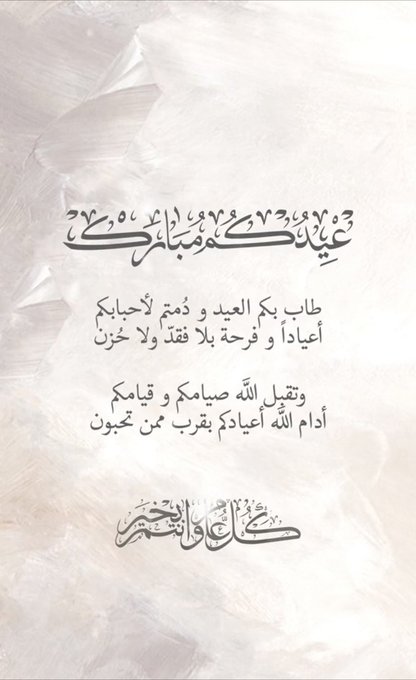 عِيْدُكُم مُبَارَكْ
طاب بكم العيد و دُمتم لأحبابكم
أعياداً و فرحة بلا فقدّ ولا حُزن
وتقبل اللَّه صيامكم و قيامكم
أدام اللَّه أعيادكم بقرب ممن تحبون
كُلُّ عَامٍ وانتم بخير